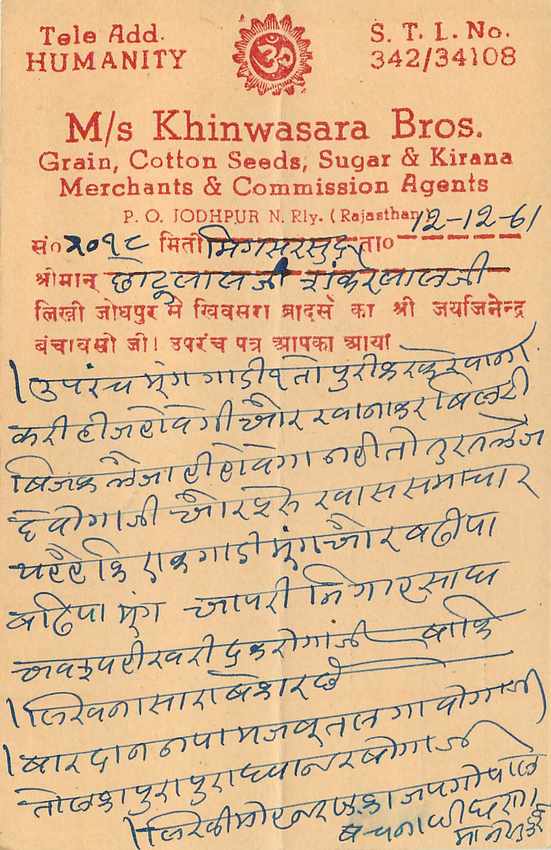 Tele Add.
HUMANITY
ॐ
S. T. L. No.
342/34108
M/s Khinwasara Bros.
Grain, Cotton Seeds, Sugar & Kirana
Merchants & Commission Agents
P. O. JODHPUR N. Rly. (Rajasthan) 12-12-61
सं० २०१८ मिती मिगसर सुद ता०
श्रीमान् छोटूलालजी शंकरलालजी
लिखी जोधपुर से खिवसरा ब्रादर्स का श्री जयजिनेन्द्र
बंचावसी जी। उपरंच पत्र आपका आया
उपरंच मुंग गाडी १ तो पुरी करके रवाना
करी ही ज होवेगी और रवाना कर बिलटी
बिजक भेजा ही होवेगा नही तो तुरत भेज
देवोगाजी और खास समाचार
यह है कि एक गाडी मुंग और बढीया
बढिया मुंग आपरी निगाह साथ
खरीद करोगाजी बाकि
लिखना सारा बेकार छे
बारदान नया मजबूत लगावोगाजी
तोल का पुरा पुरा ध्यान रखोगाजी
लिखी मोहनराज का जयगोपाल